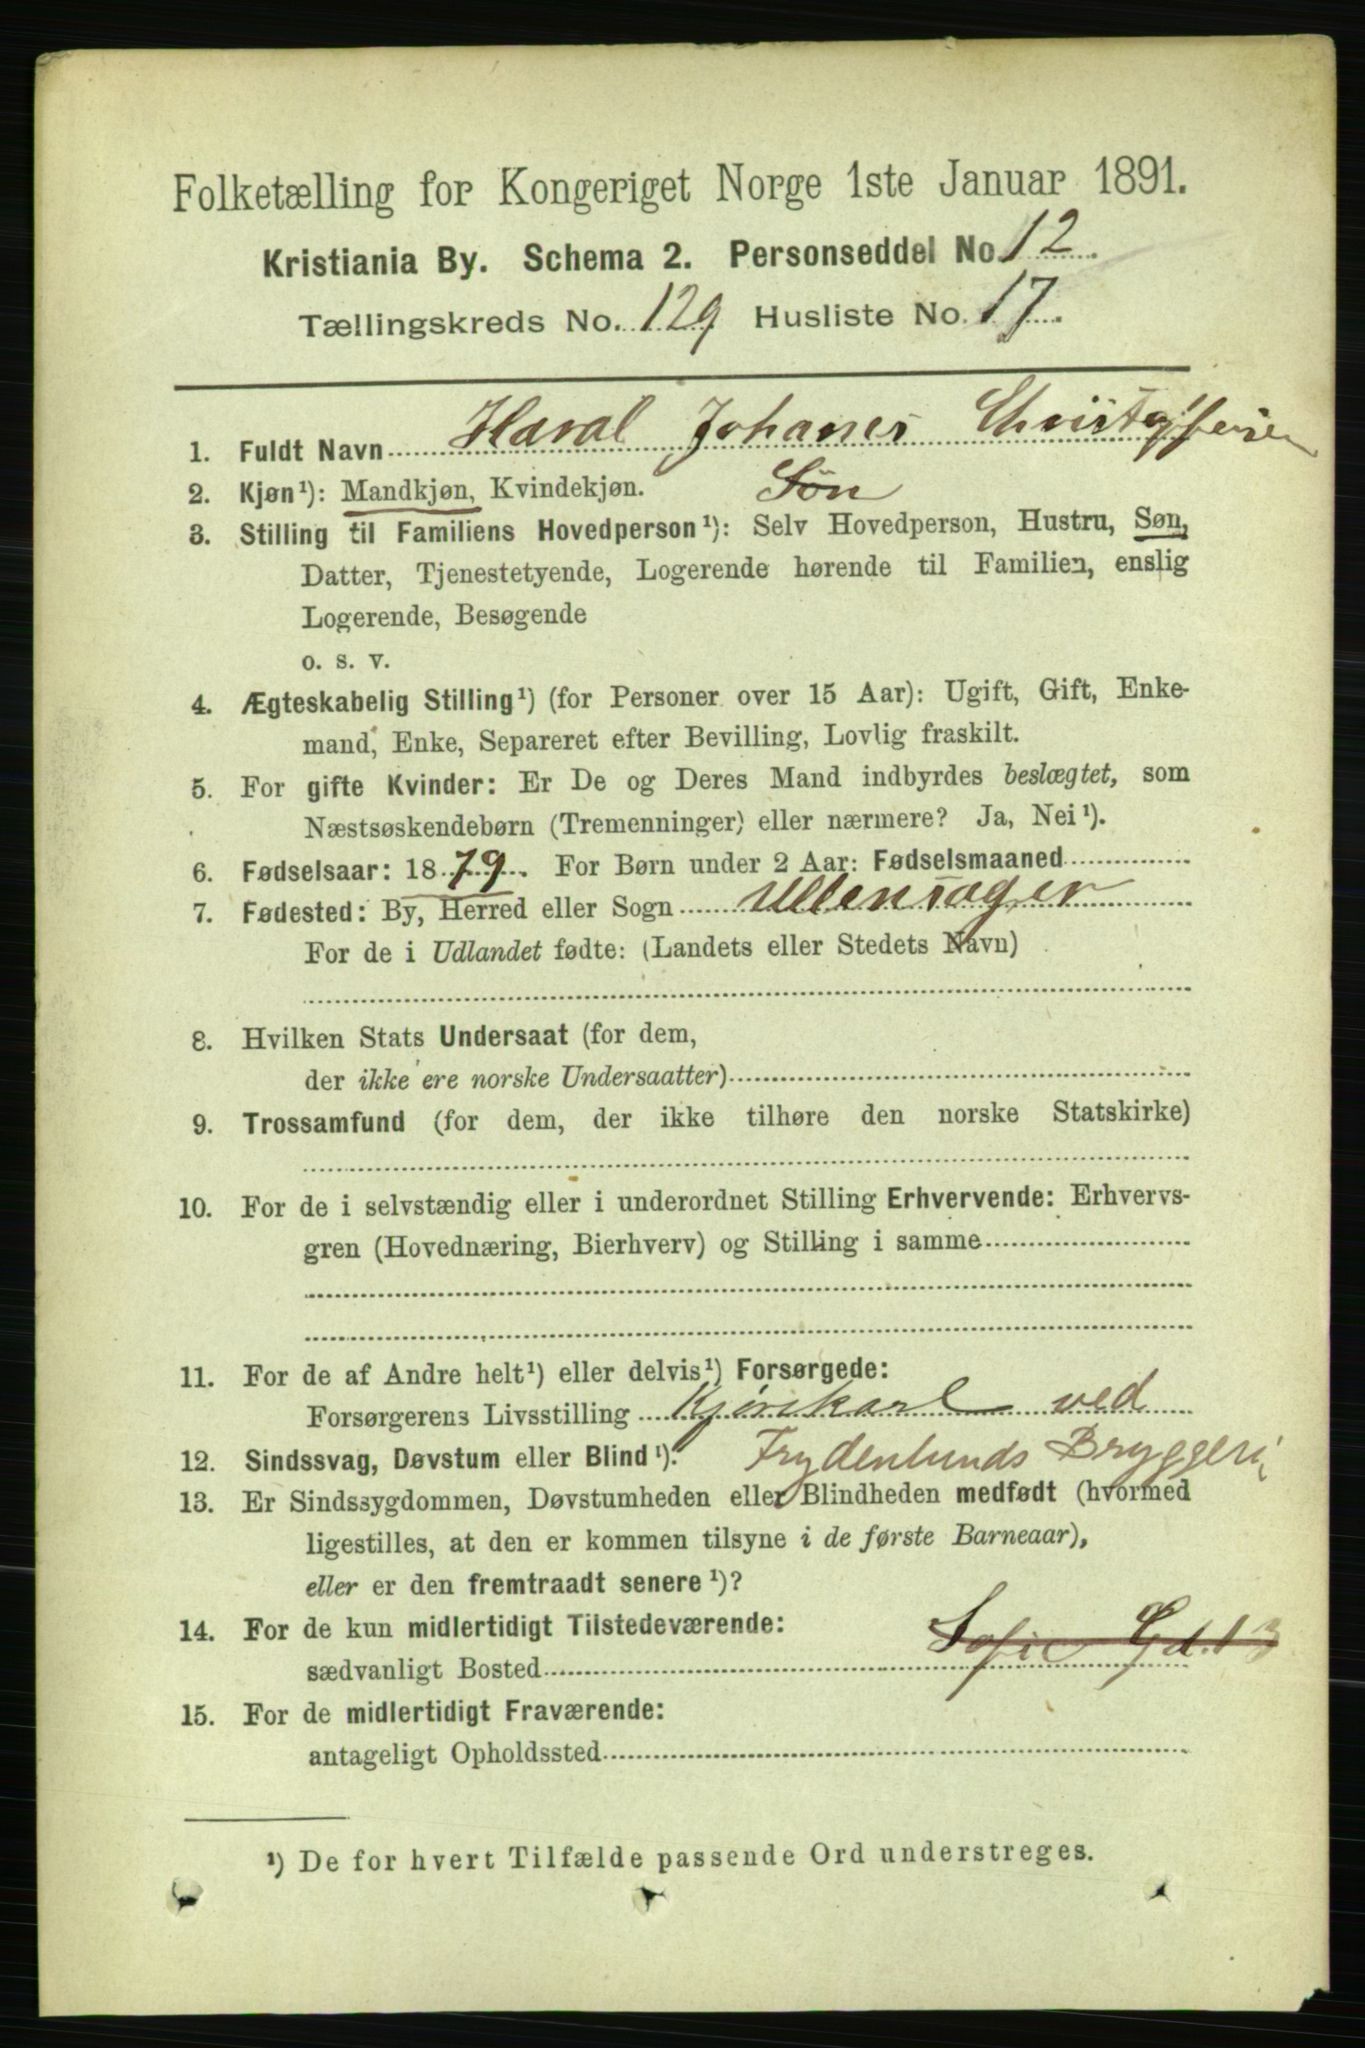 Folketælling for Kongeriget Norge 1ste Januar 1891.
Kristiania By. Schema 2. Personseddel No. 12
Tællingskreds No. 129 Husliste No. 17.
1. Fuldt Navn Haral Johanes Christoffersen
2. Kjøn¹): Mandkjøn, Kvindekjøn. Søn
3. Stilling til Familiens Hovedperson¹): Selv Hovedperson, Hustru, Søn,
Datter, Tjenestetyende, Logerende hørende til Familien, enslig
Logerende, Besøgende
o. s. v.
4. Ægteskabelig Stilling¹) (for Personer over 15 Aar): Ugift, Gift, Enke-
mand, Enke, Separeret efter Bevilling, Lovlig fraskilt.
5. For gifte Kvinder: Er De og Deres Mand indbyrdes beslægtet, som
Næstsøskendebørn (Tremenninger) eller nærmere? Ja, Nei¹).
6. Fødselsaar: 1879. For Børn under 2 Aar: Fødselsmaaned
7. Fødested: By, Herred eller Sogn Ullensager
For de i Udlandet fødte: (Landets eller Stedets Navn)
8. Hvilken Stats Undersaat (for dem,
der ikke ere norske Undersaatter)
9. Trossamfund (for dem, der ikke tilhøre den norske Statskirke)
10. For de i selvstændig eller i underordnet Stilling Erhvervende: Erhvervs-
gren (Hovednæring, Bierhverv) og Stilling i samme
11. For de af Andre helt¹) eller delvis¹) Forsørgede:
Forsørgerens Livsstilling Kjørekarl ved
12. Sindssvag, Døvstum eller Blind¹). Frydenlunds Bryggeri
13. Er Sindssygdommen, Døvstumheden eller Blindheden medfødt (hvormed
ligestilles, at den er kommen tilsyne i de første Barneaar),
eller er den fremtraadt senere¹)?
14. For de kun midlertidigt Tilstedeværende:
sædvanligt Bosted Sofie Gd. 13
15. For de midlertidigt Fraværende:
antageligt Opholdssted
¹) De for hvert Tilfælde passende Ord understreges.